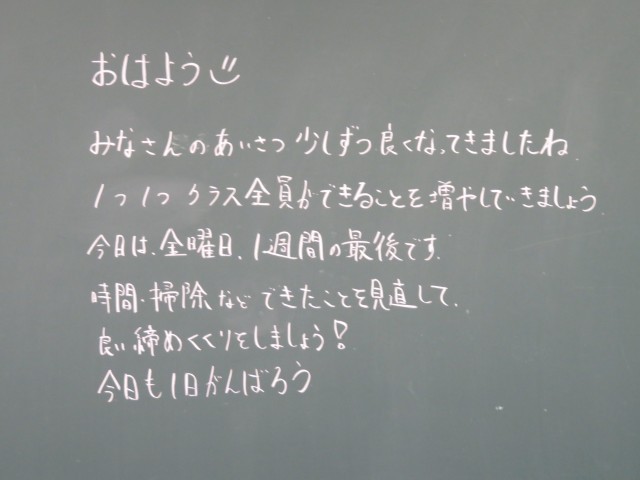 おはよう
みなさんのあいさつ 少しずつ良くなってきましたね
1つ1つ クラス全員ができることを増やしていきましょう
今日は、金曜日、1週間の最後です。
時間・掃除などできたことを見直して、
良い締めくくりをしましょう!
今日も1日がんばろう